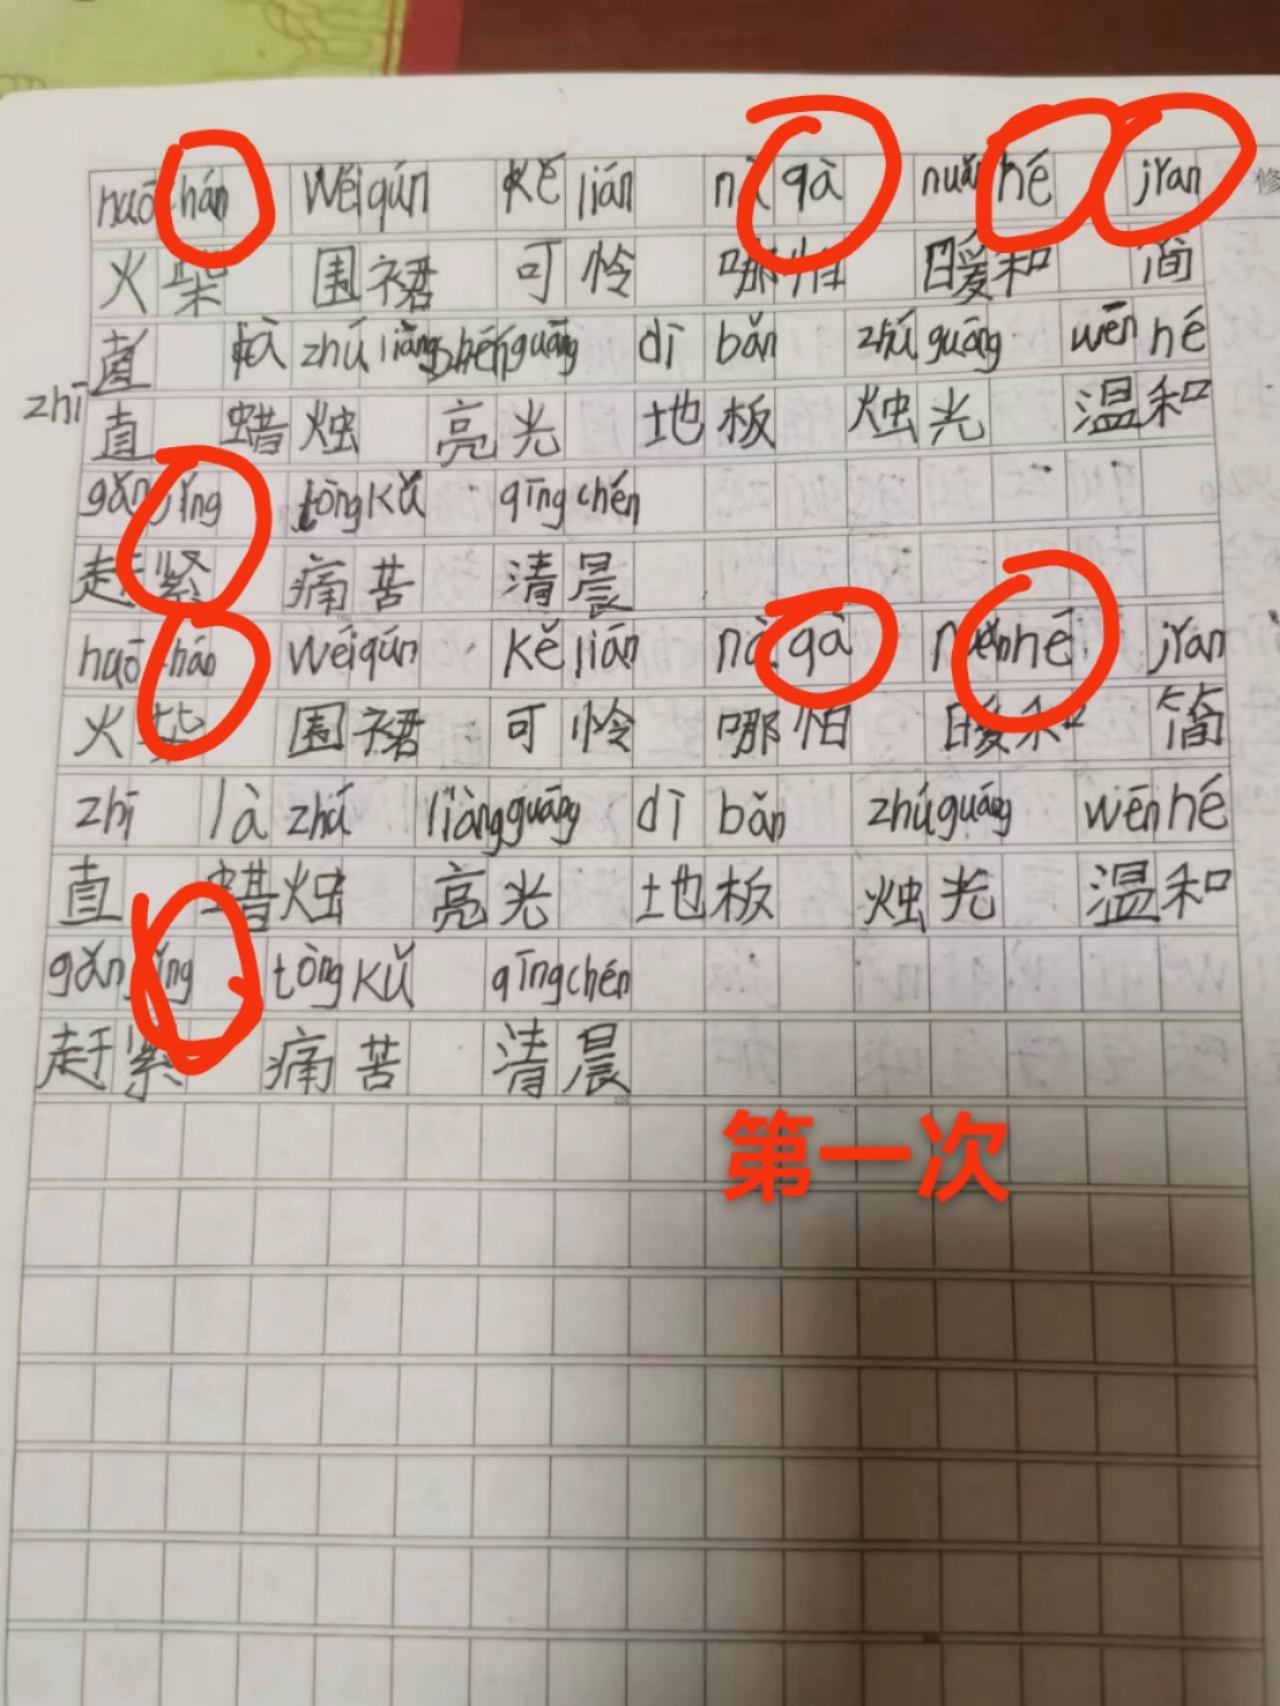 huō hán wéi qún kě lián nà qà nuǎn hé jǐan 修
火柴 围裙 可怜 哪怕 暖和 简
直 là zhú liàng guāng dì bǎn zhú guāng wēn hé
zhī 直 蜡烛 亮光 地板 烛光 温和
gǎn jǐng tòng kǔ qīng chén
赶紧 痛苦 清晨
huō hán wéi qún kě lián nà qà nuǎn hé jǐan
火柴 围裙 可怜 哪怕 暖和 简
zhī là zhú liàng guāng dì bǎn zhú guāng wēn hé
直 蜡烛 亮光 地板 烛光 温和
gǎn jǐng tòng kǔ qīng chén
赶紧 痛苦 清晨
第一次